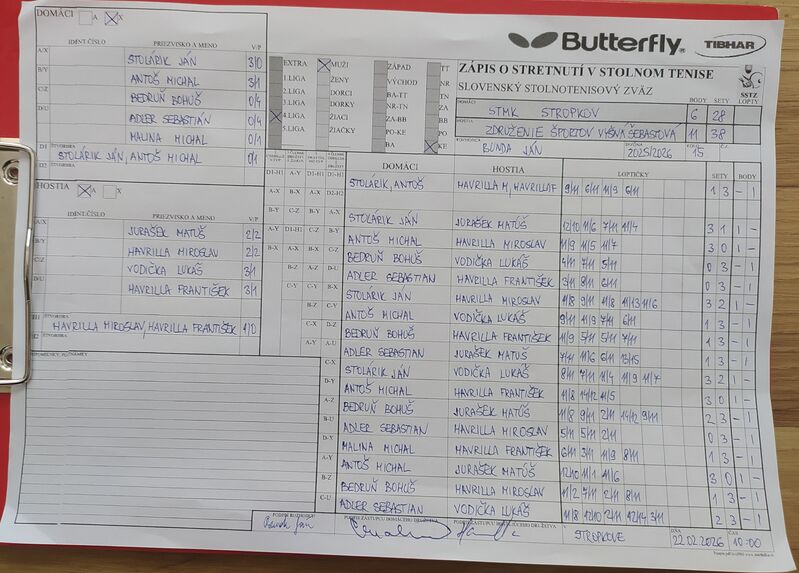 DOMÁCI A X
Butterfly TIBHAR
ZÁPIS O STRETNUTÍ V STOLNOM TENISE
SLOVENSKÝ STOLNOTENISOVÝ ZVÄZ
SSTZ
IDENT.ČÍSLO PRIEZVISKO A MENO V/P
A/X STOLÁRIK JÁN 3/0
B/Y ANTOŠ MICHAL 3/1
C/Z BEDRUŇ BOHUŠ 0/4
D/U ADLER SEBASTIÁN 0/4
MALINA MICHAL 0/1
D1 ŠTVORHRA STOLÁRIK JÁN, ANTOŠ MICHAL 0/1
D2
EXTRA MUŽI ZÁPAD TT
1.LIGA ŽENY VÝCHOD NR
2.LIGA DORCI BA-TT TN
3.LIGA DORKY NR-TN ZA
4.LIGA ŽIACI ZA-BB BB
5.LIGA ŽIAČKY PO-KE PO
BA KE
BODY SETY LOPTY
DOMÁCI STMK STROPKOV 6 28
HOSTIA ZDRUŽENIE ŠPORTOV VYŠNÁ ŠEBASTOVÁ 11 38
BUNDA JÁN 2025/2026 KOLO 15
HOSTIA A X
IDENT.ČÍSLO PRIEZVISKO A MENO V/P
A/X JURAŠEK MATÚŠ 2/2
B/Y HAVRILLA MIROSLAV 2/2
C/Z VODIČKA LUKÁŠ 3/1
D/U HAVRILLA FRANTIŠEK 3/1
ŠTVORHRA HAVRILLA MIROSLAV, HAVRILLA FRANTIŠEK 1/0
PRIPOMIENKY, POZNÁMKY
DOMÁCI HOSTIA LOPTIČKY SETY BODY
STOLÁRIK, ANTOŠ HAVRILLA M, HAVRILLA F 9/11 6/11 11/9 6/11 1 3 - 1
STOLÁRIK JÁN JURAŠEK MATÚŠ 12/10 11/6 7/11 11/4 3 1 1 -
ANTOŠ MICHAL HAVRILLA MIROSLAV 11/9 11/5 11/7 3 0 1 -
BEDRUŇ BOHUŠ VODIČKA LUKÁŠ 4/11 7/11 5/11 0 3 - 1
ADLER SEBASTIAN HAVRILLA FRANTIŠEK 9/11 8/11 6/11 0 3 - 1
STOLÁRIK JÁN HAVRILLA MIROSLAV 11/8 9/11 11/8 11/13 11/6 3 2 1 -
ANTOŠ MICHAL VODIČKA LUKÁŠ 9/11 11/9 7/11 6/11 1 3 - 1
BEDRUŇ BOHUŠ HAVRILLA FRANTIŠEK 11/9 5/11 5/11 7/11 1 3 - 1
ADLER SEBASTIAN JURAŠEK MATÚŠ 7/11 11/6 6/11 13/15 1 3 - 1
STOLÁRIK JÁN VODIČKA LUKÁŠ 8/11 7/11 11/4 11/9 11/7 3 2 1 -
ANTOŠ MICHAL HAVRILLA FRANTIŠEK 11/8 14/12 11/5 3 0 1 -
BEDRUŇ BOHUŠ JURAŠEK MATÚŠ 11/8 9/11 2/11 14/12 9/11 2 3 - 1
ADLER SEBASTIAN HAVRILLA MIROSLAV 5/11 5/11 2/11 0 3 - 1
MALINA MICHAL HAVRILLA FRANTIŠEK 6/11 3/11 11/9 8/11 1 3 - 1
ANTOŠ MICHAL JURAŠEK MATÚŠ 12/10 11/1 11/6 3 0 1 -
BEDRUŇ BOHUŠ HAVRILLA MIROSLAV 11/2 7/11 2/11 8/11 1 3 - 1
ADLER SEBASTIAN VODIČKA LUKÁŠ 11/8 12/10 2/11 12/14 3/11 2 3 - 1
PODPIS ROZHODCU PODPIS ZÁSTUPCU DOMÁCEHO DRUŽSTVA PODPIS ZÁSTUPCU HOSŤUJÚCEHO DRUŽSTVA V DŇA ČAS
STROPKOVE 22.02.2026 10:00